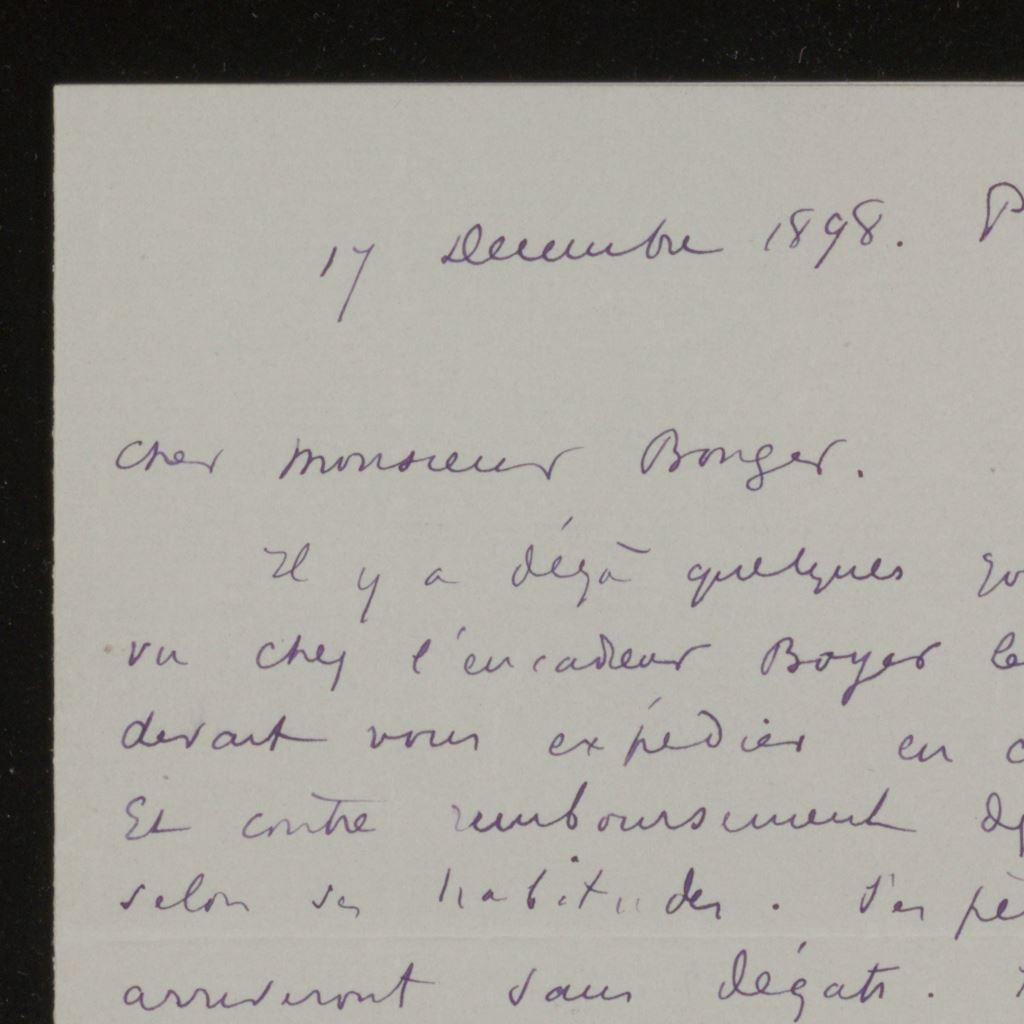 17 Decembre 1898. P
Cher Monsieur Bonger.
Il y a déjà quelques jo
vu chez l'encadreur Boyer le
devait vous expédier en
Et contre remboursement
selon ses habitudes. J'es pè
arriveront sans dégats.